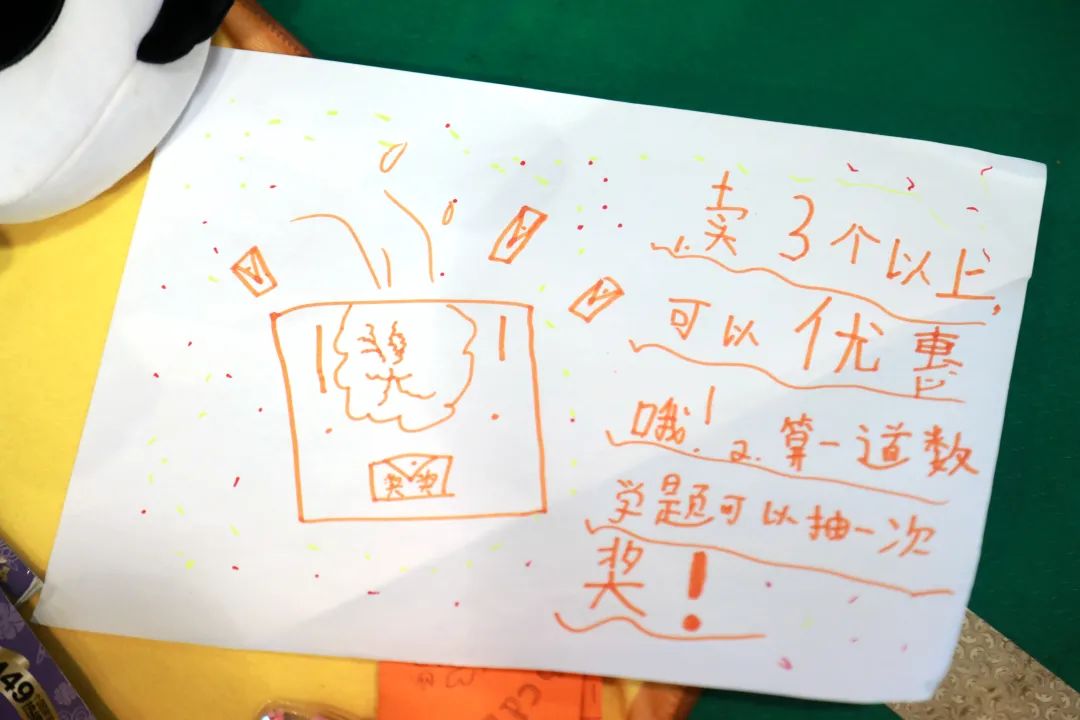 1.卖3个以上,
可以优惠
哦! 2.算一道数
学题可以抽一次
奖!
奖
49